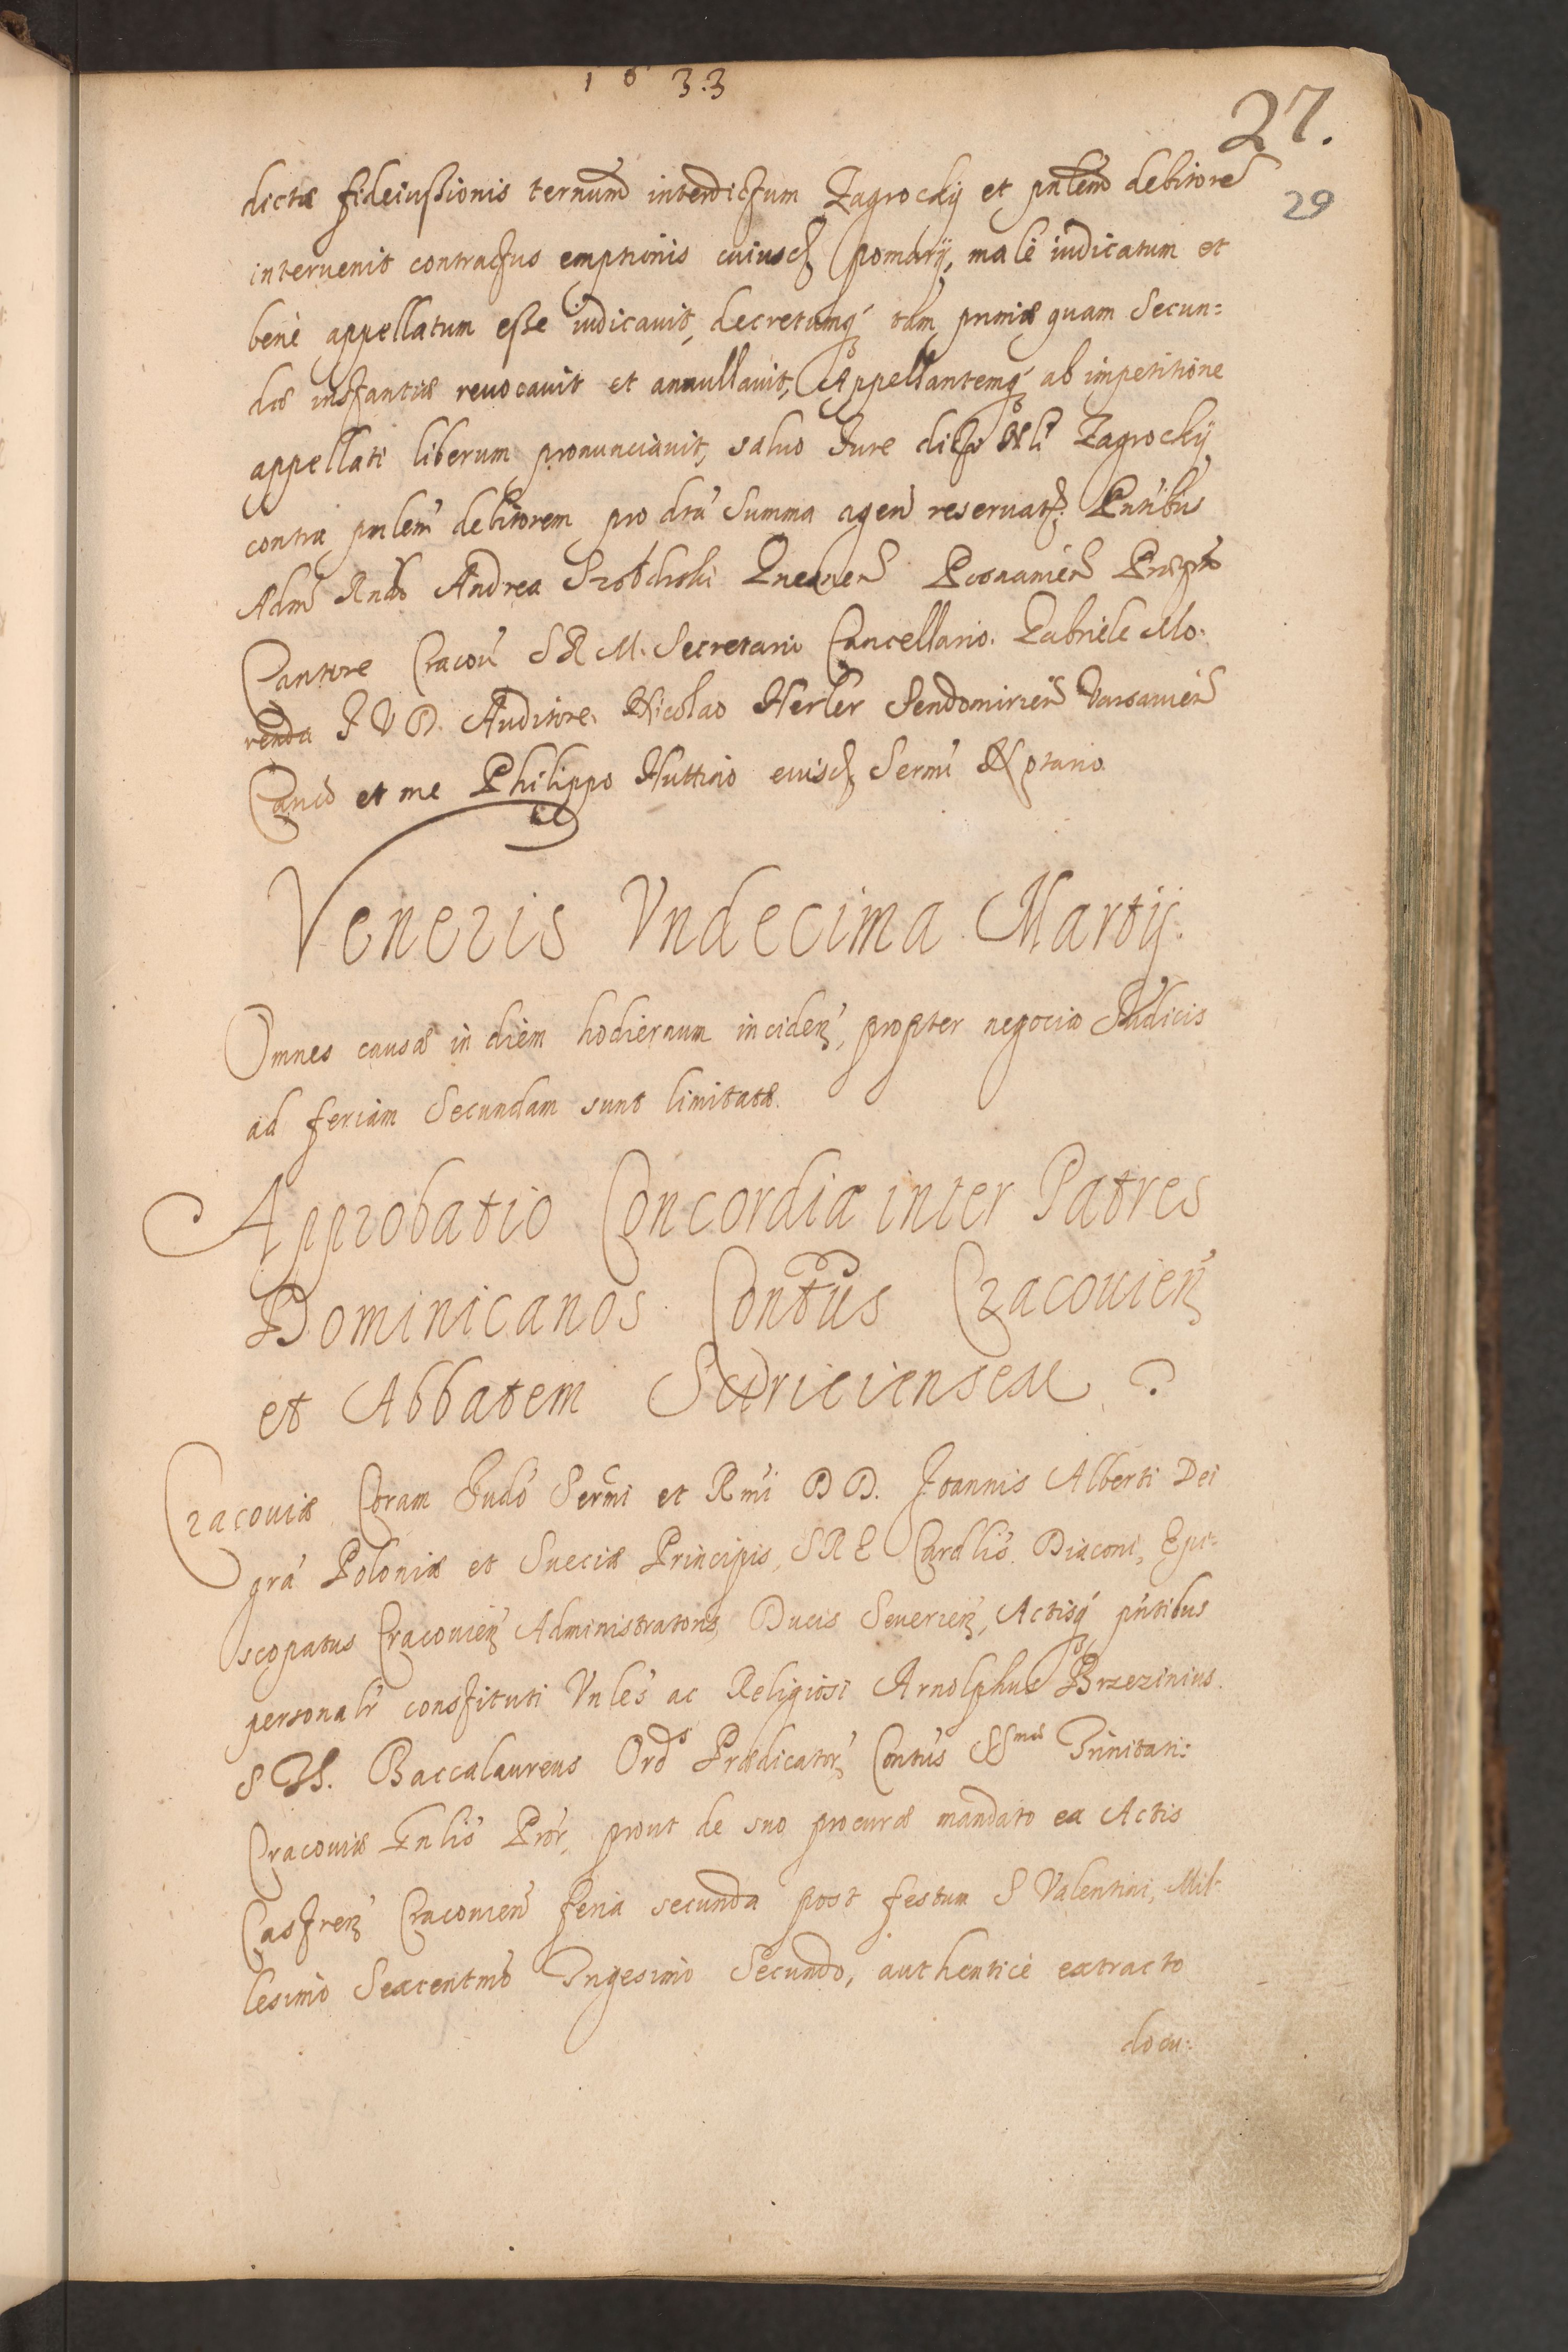 1633
27.
29
dictæ fideiussionis ternum interdictum Zagrocky et pnlem debitorem
interuenit contractus emptionis cuiusd pomarij, male iudicatum et
bene appellatum esse iudicauit, decretumq tam primæ quam Secun=
dæ instantiæ reuocauit et annullauit, Appellantemq ab impetitione
appellati liberum pronunciauit, saluo Jure dicto Nli Zagrocky
contra pnlem debitorem pro dta Summa agen reseruat. Pntibus
Adm Rndo Andrea Szołdrski Gnesnen Posnanien Præpto
Cantore Cracou S R M. Secretario Cancellario. Gabriele Mo-
renda J V D. Auditore. Nicolao Herler Sendomirien Varsauien
Canco et me Philippo Huttino euisd Sermi Notario
Veneris Vndecima Martij.
Omnes causæ in diem hodiernum inciden, propter negocia Judicis
ad feriam Secundam sunt limitatæ.
Approbatio Concordiæ inter Patres
Dominicanos Contus Cracouien
et Abbatem Sciriciensem
Cracouiæ Coram Judo Sermi et Rmi D D. Joannis Alberti Dei
gra Poloniæ et Sueciæ Principis, S R E Cardlis Diaconi, Epi=
scopatus Cracouien Administratoris Ducis Seuerien, Actisq pntibus
personalr constituti Vnles ac Religiosi Arnolphus Brzezinius
S Th. Baccalaureus Ords Prædicator Contus SSmæ Trinitati:
Cracouiæ Gnlis Pror, prout de suo procuræ mandato ex Actis
Castren Cracouien feria secunda post festum S Valentini, Mil-
lesimo Sexcentmo Trigesimo Secundo, authentice extracto
docu: